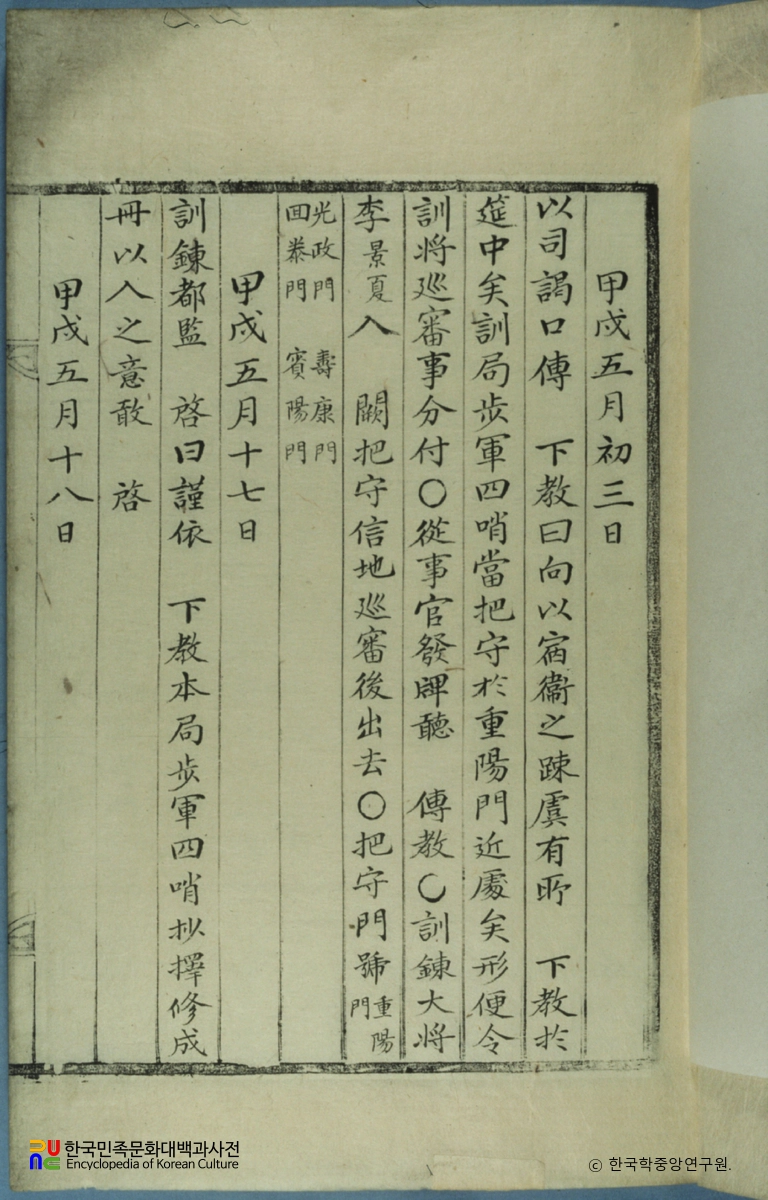 甲戌五月初三日
以司謁口傳 下敎曰向以宿衛之踈虞有所 下敎於
筵中矣訓局步軍四哨當把守於重陽門近處矣形便令
訓將巡審事分付○從事官發牌聽 傳敎○訓鍊大將
李景夏入 闕把守信地巡審後出去○把守門號重陽門
光政門 壽康門
回泰門 賓陽門
甲戌五月十七日
訓鍊都監 啓曰謹依 下敎本局步軍四哨抄擇修成
冊以入之意敢 啓
甲戌五月十八日
한국민족문화대백과사전
Encyclopedia of Korean Culture
© 한국학중앙연구원.